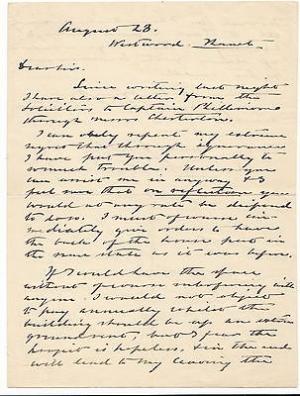 August 23.
Westwood. Thanet.
Dear Sir.
Since writing last night
I have also a letter from the
Solicitors to Captain
through Messrs
I can only repeat my extreme
regret that through ignorance
I have put you personally to
so much trouble. Unless you
can assist me in any way I
feel sure that on reflection you
would not at any rate be disposed
to do so. I must of course im-
mediately give orders to have
the back of the house put in
the same state as it was before.
If I could have the space
without of course interfering with
anyone I would not object
to pay annually whilst the
building should be up an extra
ground rent, but I fear the
project is hopeless & in the end
will lead to my leaving the